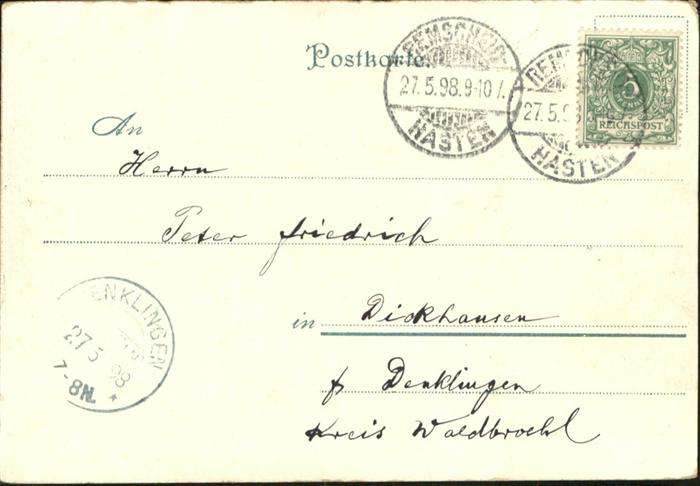 Postkarte
REMSCHEID
27.5.98.9-10
HASTEN
REMSCHEID
27.5.98
HASTEN
5
REICHSPOST
An
Herrn
Peter Friedrich
in Dickhausen
p Denklingen
Kreis Waldbroehl
DENKLINGEN
27 5 98
7-8N. *